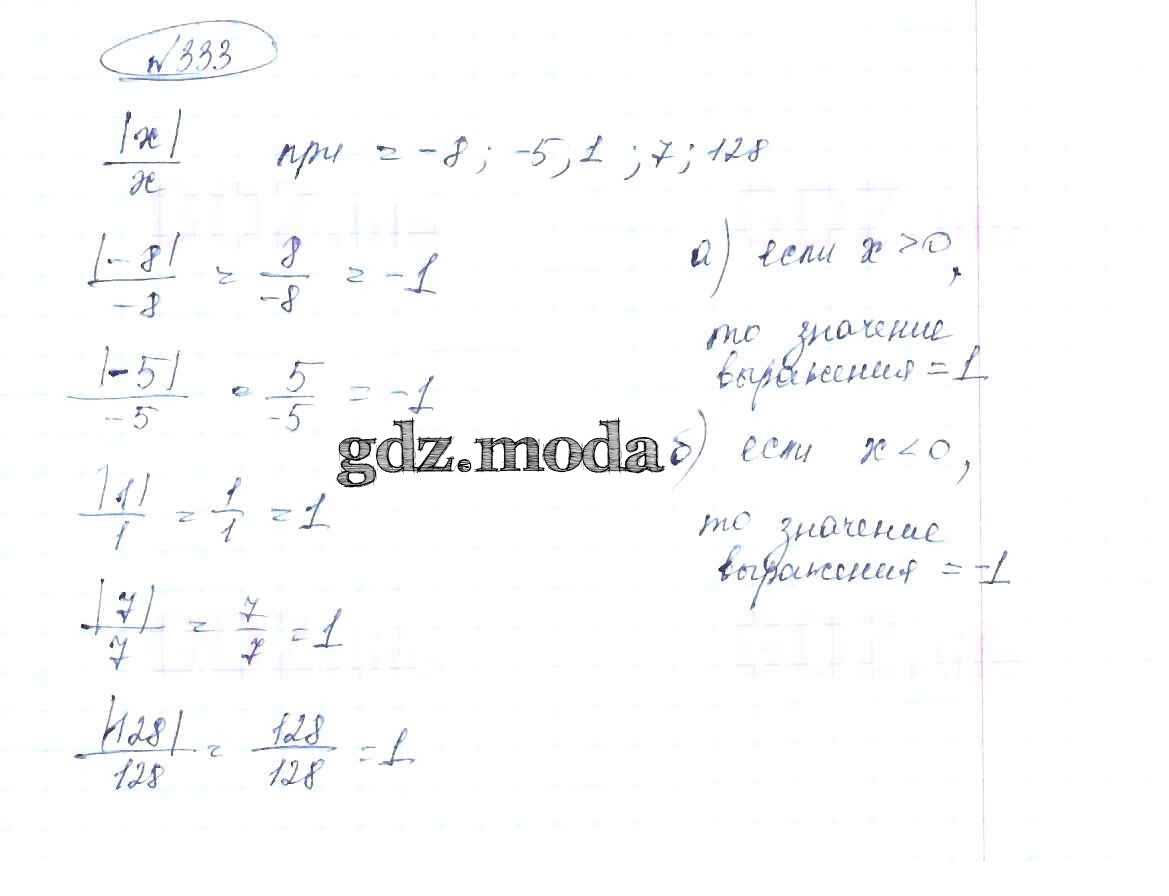 №333
|x|/x при = -8; -5, 1; 7; 128
|-8|/-8 = 8/-8 = -1
|-5|/-5 = 5/-5 = -1
|1|/1 = 1/1 = 1
|7|/7 = 7/7 = 1
|128|/128 = 128/128 = 1
а) если x > 0,
то значение
выражения = 1
б) если x < 0,
то значение
выражения = -1
gdz.moda